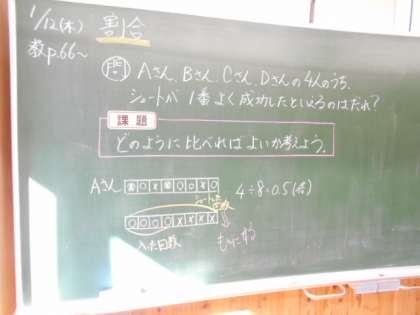 1/12(木) 割合
教p.66〜
問 Aさん、Bさん、Cさん、Dさんの4人のうち、
シュートが1番よく成功したといえるのはだれ?
課題
どのように比べればよいか考えよう。
Aさん
4÷8=0.5(倍)
シュートの回数
○○○○××××
入った回数
もとにする